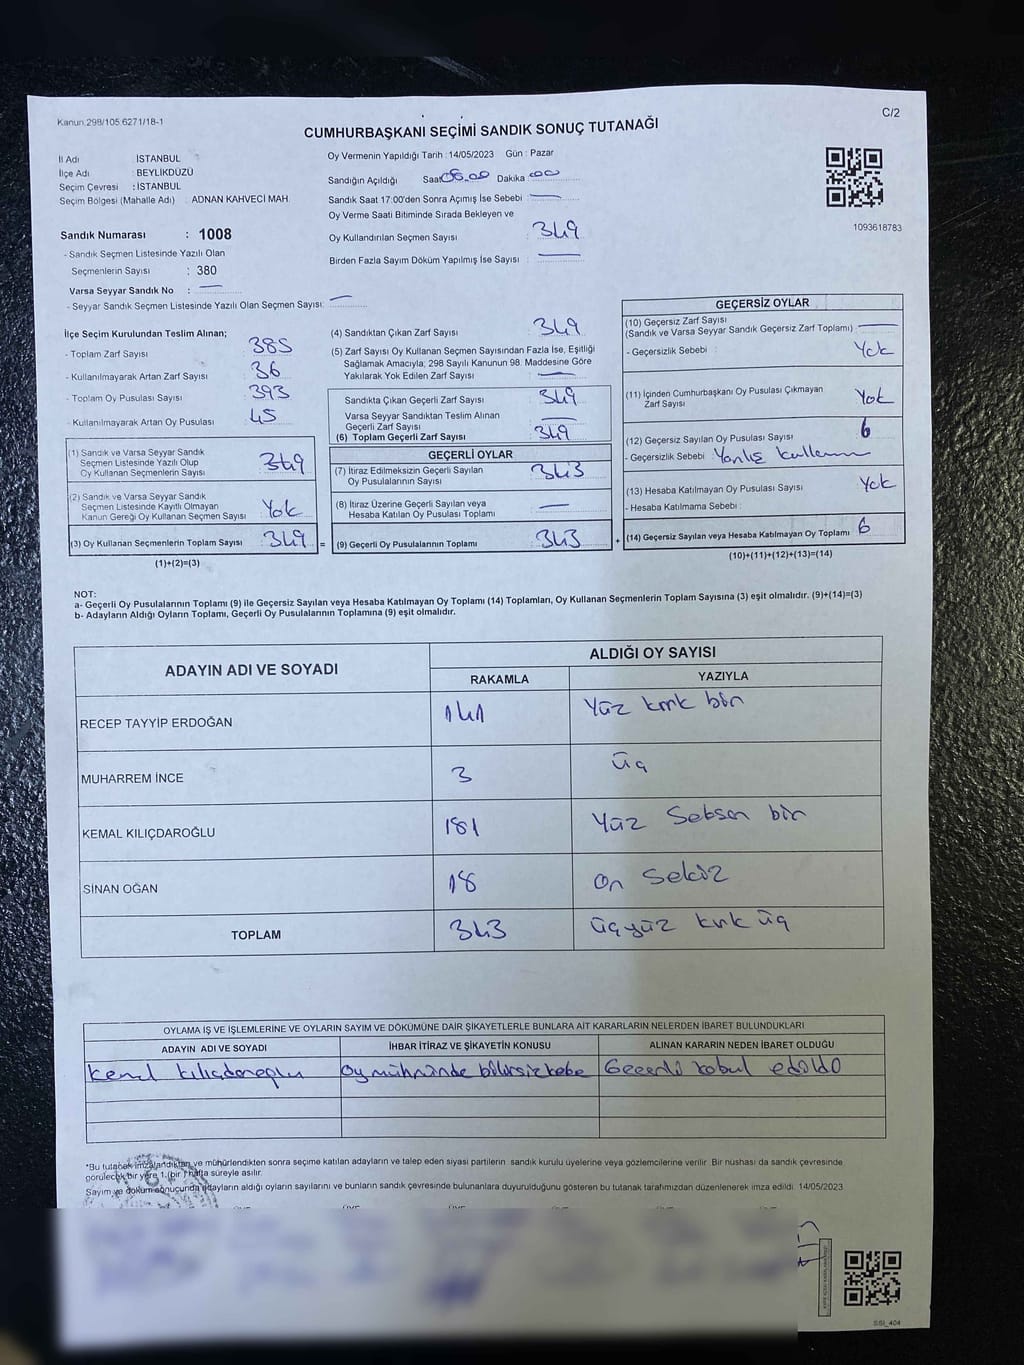 Kanun.298/105.6271/18-1
C/2
CUMHURBAŞKANI SEÇİMİ SANDIK SONUÇ TUTANAĞI
İl Adı İSTANBUL
İlçe Adı : BEYLİKDÜZÜ
Seçim Çevresi : İSTANBUL
Seçim Bölgesi (Mahalle Adı) . ADNAN KAHVECİ MAH.
Oy Vermenin Yapıldığı Tarih : 14/05/2023 Gün : Pazar
Sandığın Açıldığı Saat 08.00 Dakika 00
Sandık Saat 17:00'den Sonra Açımış İse Sebebi —
Oy Verme Saati Bitiminde Sırada Bekleyen ve
Oy Kullandırılan Seçmen Sayısı 349
Birden Fazla Sayım Döküm Yapılmış İse Sayısı —
1093618783
Sandık Numarası : 1008
- Sandık Seçmen Listesinde Yazılı Olan
Seçmenlerin Sayısı : 380
Varsa Seyyar Sandık No : —
- Seyyar Sandık Seçmen Listesinde Yazılı Olan Seçmen Sayısı: —
İlçe Seçim Kurulundan Teslim Alınan;
- Toplam Zarf Sayısı 385
- Kullanılmayarak Artan Zarf Sayısı 36
- Toplam Oy Pusulası Sayısı 393
- Kullanılmayarak Artan Oy Pusulası 45
(1) Sandık ve Varsa Seyyar Sandık
Seçmen Listesinde Yazılı Olup
Oy Kullanan Seçmenlerin Sayısı 349
(2) Sandık ve Varsa Seyyar Sandık
Seçmen Listesinde Kayıtlı Olmayan
Kanun Gereği Oy Kullanan Seçmen Sayısı Yok
(3) Oy Kullanan Seçmenlerin Toplam Sayısı 349 =
(1)+(2)=(3)
(4) Sandıktan Çıkan Zarf Sayısı 349
(5) Zarf Sayısı Oy Kullanan Seçmen Sayısından Fazla İse, Eşitliği
Sağlamak Amacıyla, 298 Sayılı Kanunun 98. Maddesine Göre
Yakılarak Yok Edilen Zarf Sayısı —
Sandıkta Çıkan Geçerli Zarf Sayısı 349
Varsa Seyyar Sandıktan Teslim Alınan
Geçerli Zarf Sayısı —
(6) Toplam Geçerli Zarf Sayısı 349
GEÇERLİ OYLAR
(7) İtiraz Edilmeksizin Geçerli Sayılan
Oy Pusulalarının Sayısı 343
(8) İtiraz Üzerine Geçerli Sayılan veya
Hesaba Katılan Oy Pusulası Toplamı —
(9) Geçerli Oy Pusulalarının Toplamı 343 +
GEÇERSİZ OYLAR
(10) Geçersiz Zarf Sayısı
(Sandık ve Varsa Seyyar Sandık Geçersiz Zarf Toplamı) —
- Geçersizlik Sebebi : Yok
(11) İçinden Cumhurbaşkanı Oy Pusulası Çıkmayan
Zarf Sayısı Yok
(12) Geçersiz Sayılan Oy Pusulası Sayısı 6
- Geçersizlik Sebebi Yanlış kullanım
(13) Hesaba Katılmayan Oy Pusulası Sayısı Yok
- Hesaba Katılmama Sebebi :
(14) Geçersiz Sayılan veya Hesaba Katılmayan Oy Toplamı 6
(10)+(11)+(12)+(13)=(14)
NOT:
a- Geçerli Oy Pusulalarının Toplamı (9) ile Geçersiz Sayılan veya Hesaba Katılmayan Oy Toplamı (14) Toplamları, Oy Kullanan Seçmenlerin Toplam Sayısına (3) eşit olmalıdır. (9)+(14)=(3)
b- Adayların Aldığı Oyların Toplamı, Geçerli Oy Pusulalarının Toplamına (9) eşit olmalıdır.
ADAYIN ADI VE SOYADI ALDIĞI OY SAYISI
RAKAMLA YAZIYLA
RECEP TAYYİP ERDOĞAN 141 Yüz kırk bir
MUHARREM İNCE 3 üç
KEMAL KILIÇDAROĞLU 181 Yüz Seksen bir
SİNAN OĞAN 18 on Sekiz
TOPLAM 343 üçyüz kırk üç
OYLAMA İŞ VE İŞLEMLERİNE VE OYLARIN SAYIM VE DÖKÜMÜNE DAİR ŞİKAYETLERLE BUNLARA AİT KARARLARIN NELERDEN İBARET BULUNDUKLARI
ADAYIN ADI VE SOYADI İHBAR İTİRAZ VE ŞİKAYETİN KONUSU ALINAN KARARIN NEDEN İBARET OLDUĞU
Kemal kılıçdaroğlu Oy mühründe Geçerli kabul edildi
*Bu tutanak imzalandıktan ve mühürlendikten sonra seçime katılan adayların ve talep eden siyasi partilerin sandık kurulu üyelerine veya gözlemcilerine verilir. Bir nushası da sandık çevresinde
görülecek bir yere 1 (bir) hafta süreyle asılır.
Sayım ve döküm sonuçunda adayların aldığı oyların sayılarını ve bunların sandık çevresinde bulunanlara duyurulduğunu gösteren bu tutanak tarafımızdan düzenlenerek imza edildi. 14/05/2023
SSI_404